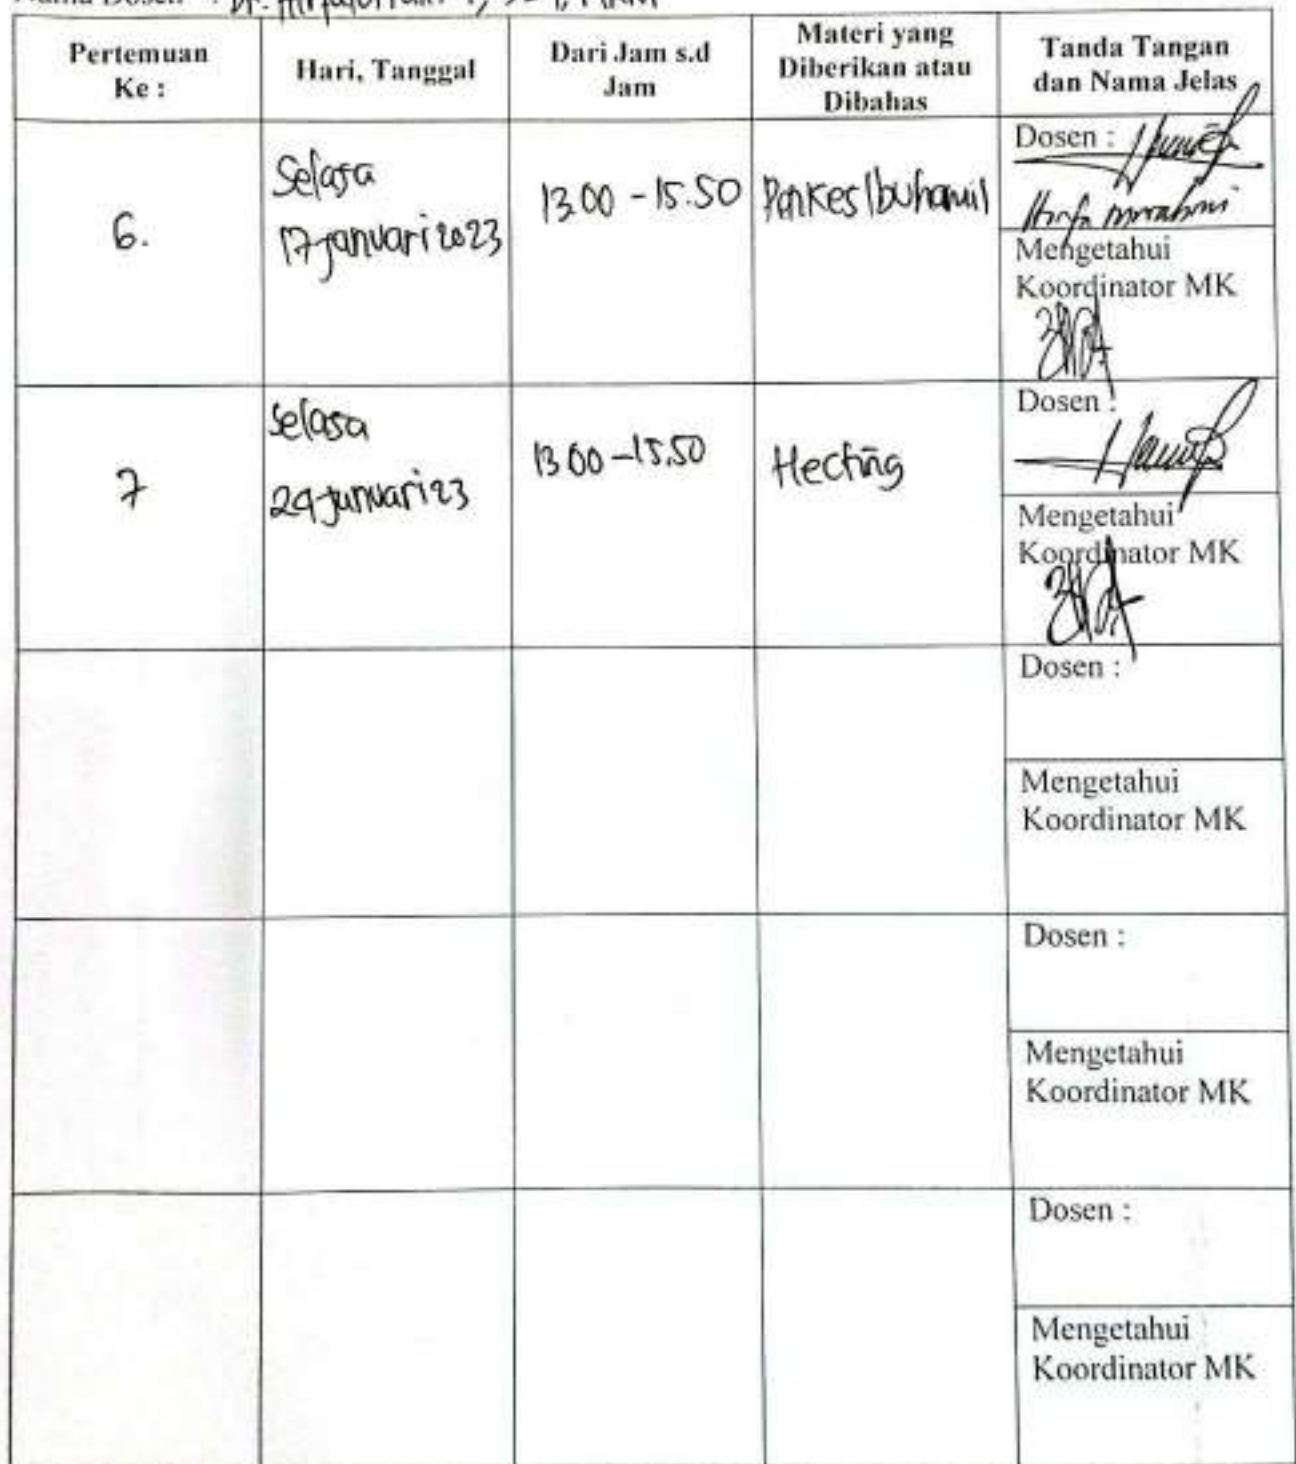 Nama Dosen : Dr.
Pertemuan
Ke :
Hari, Tanggal
Dari Jam s.d
Jam
Materi yang
Diberikan atau
Dibahas
Tanda Tangan
dan Nama Jelas
6.
Selasa
17 januari 2023
13.00 - 15.50
Penkes Ibu hamil
Dosen :
Mengetahui
Koordinator MK
7
Selasa
24 januari 23
13.00 - 15.50
Hecting
Dosen :
Mengetahui
Koordinator MK
Dosen :
Mengetahui
Koordinator MK
Dosen :
Mengetahui
Koordinator MK
Dosen :
Mengetahui
Koordinator MK